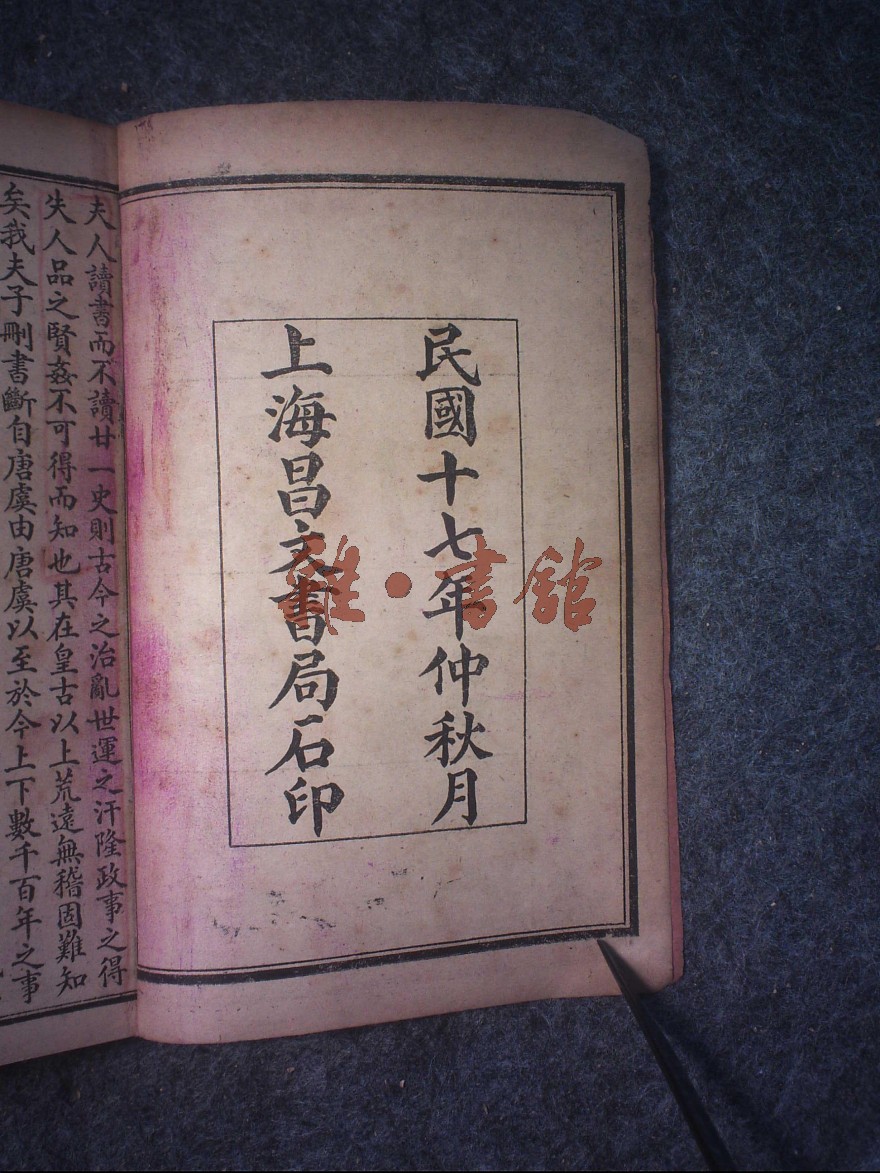 民國十七年仲秋月
上海昌文書局石印
夫人讀書而不讀廿一史則古今之治亂世運之汙隆政事之得
失人品之賢姦不可得而知也其在皇古以上荒遠無稽固難知
矣我夫子刪書斷自唐虞由唐虞以至於今上下數千百年之事
雜·書館